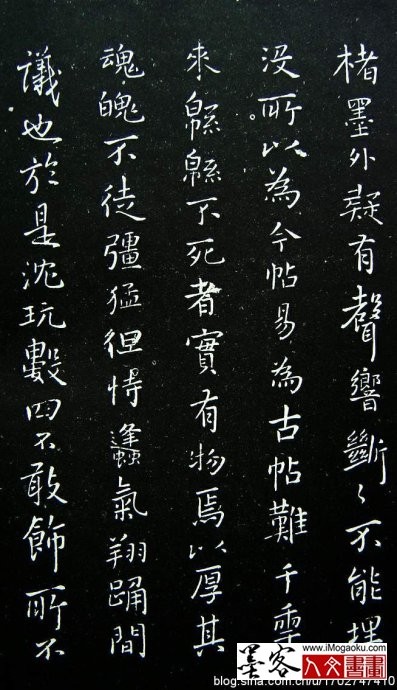 楮墨外疑有聲響斷〻不能埋
没所以為今帖易為古帖難千
來緜緜不死者實有物焉以厚其
魂魄不徒彊猛氣翔踊間
議也於是沈玩數四不敢飾所不
墨客
www.iMogaoku.com
人文書畫
blog.sina.com.cn/u/1702747410